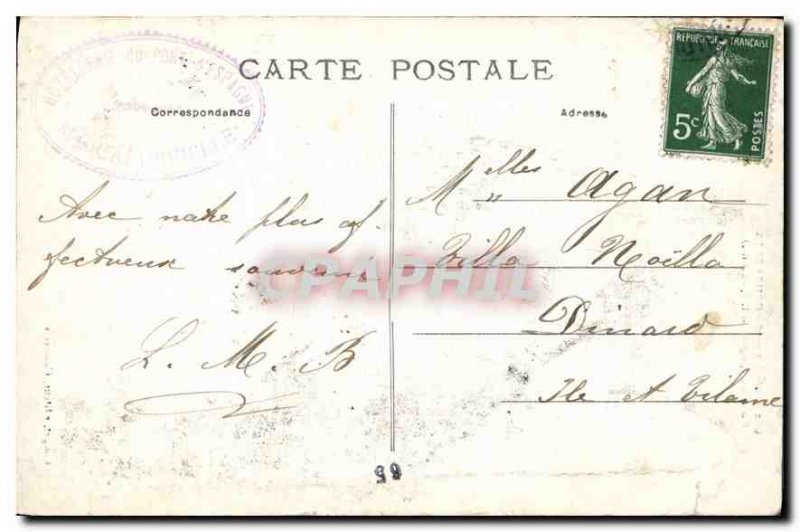 CARTE POSTALE
Correspondance
Adresse
REPUBLIQUE FRANÇAISE
5c
POSTES
Avec notre plus af-
fectueux souvenir
L. M. B
Melles Agan
Villa Noëlla
Dinard
Ile et Vilaine
CPAPHIL
PORT D'ESPAGNE